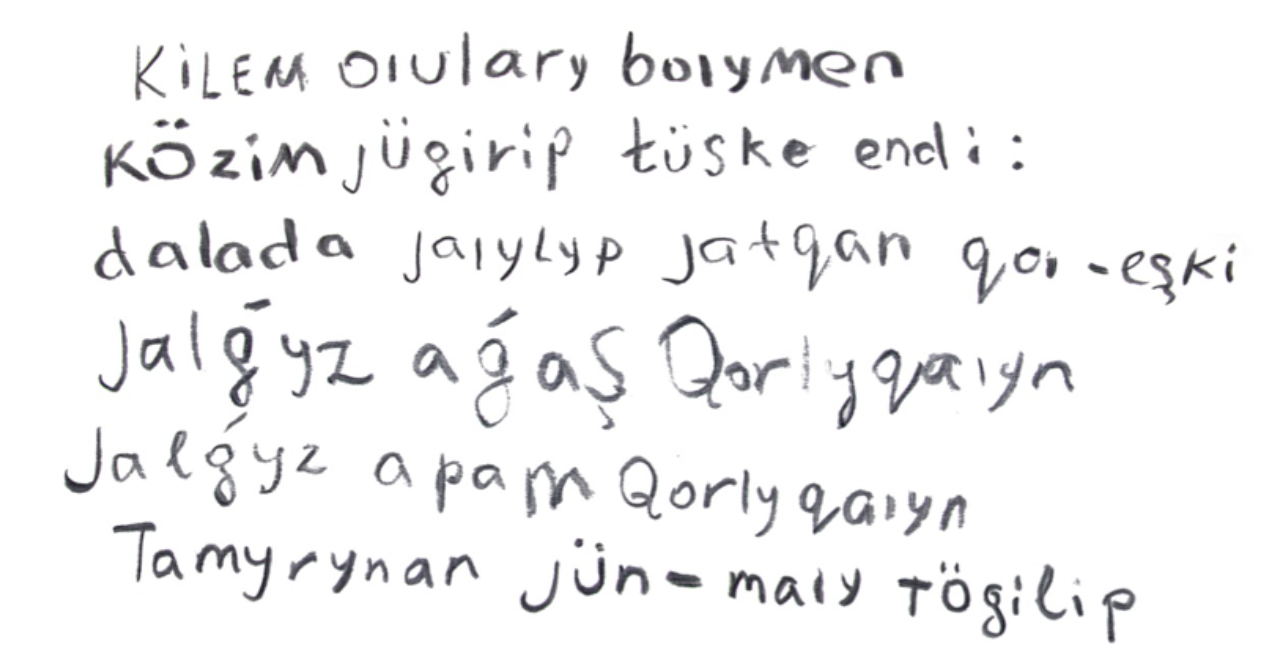 KiLEM oıulary boıymen
közim jügirip tüşke endi:
dalada jaıylyp jatqan qoı-eşki
jalǵyz aǵaş Qorlyqaıyn
Jalǵyz apam Qorlyqaıyn
Tamyrynan jün-maıy tögilip